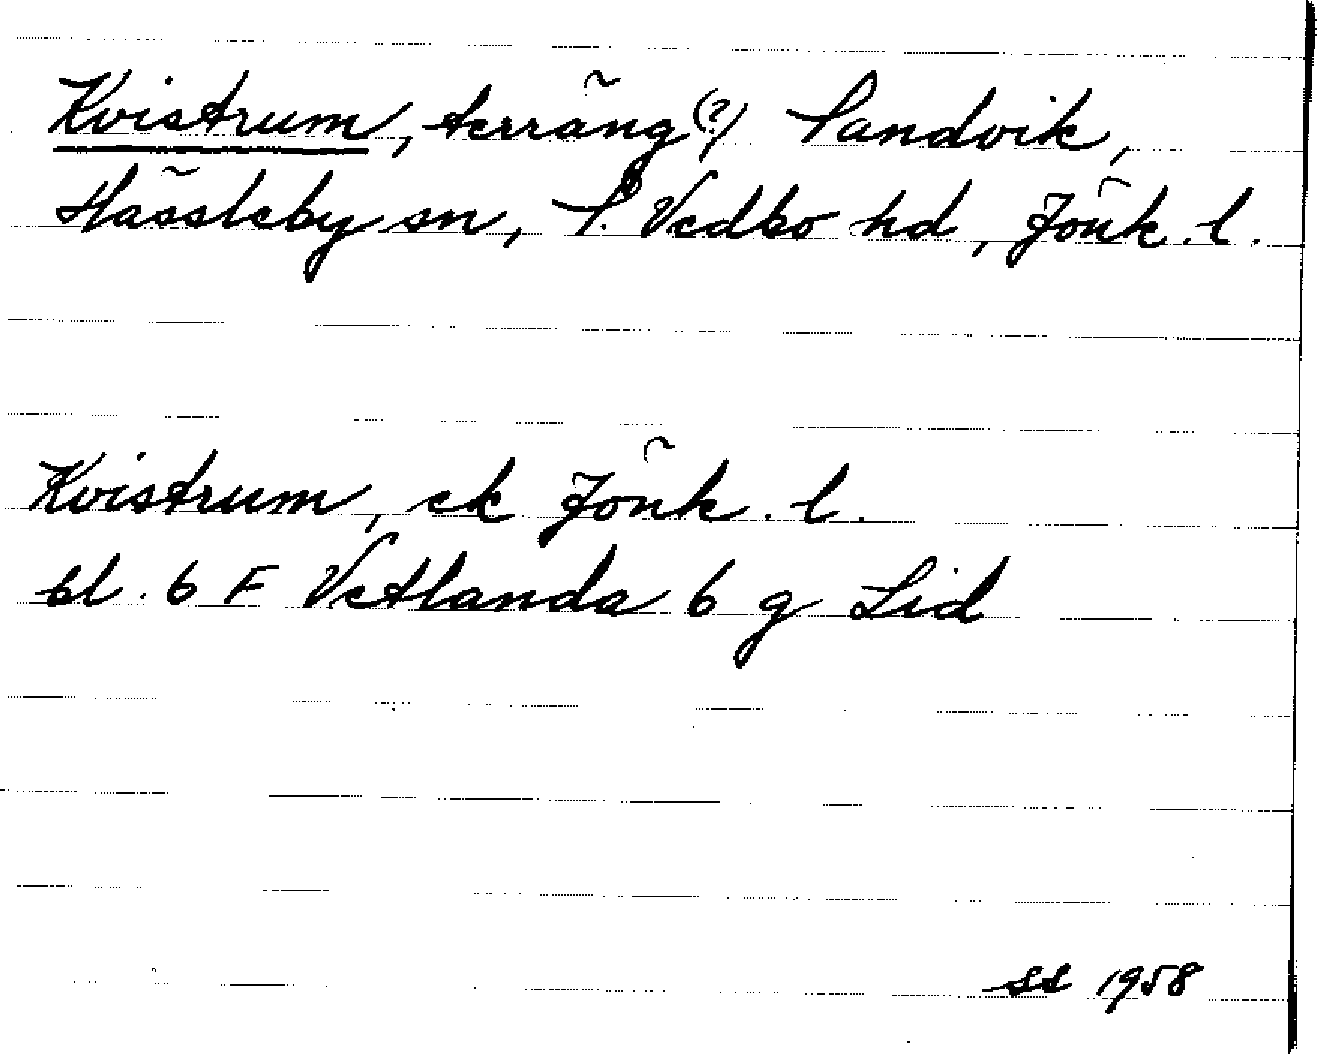 Kvistrum, terräng(?) Sandvik,
Hässleby sn, S. Vedbo hd, Jönk. l.
Kvistrum, ek Jönk. l.
bl. 6 F Vetlanda 6 g Lid
ss 1958